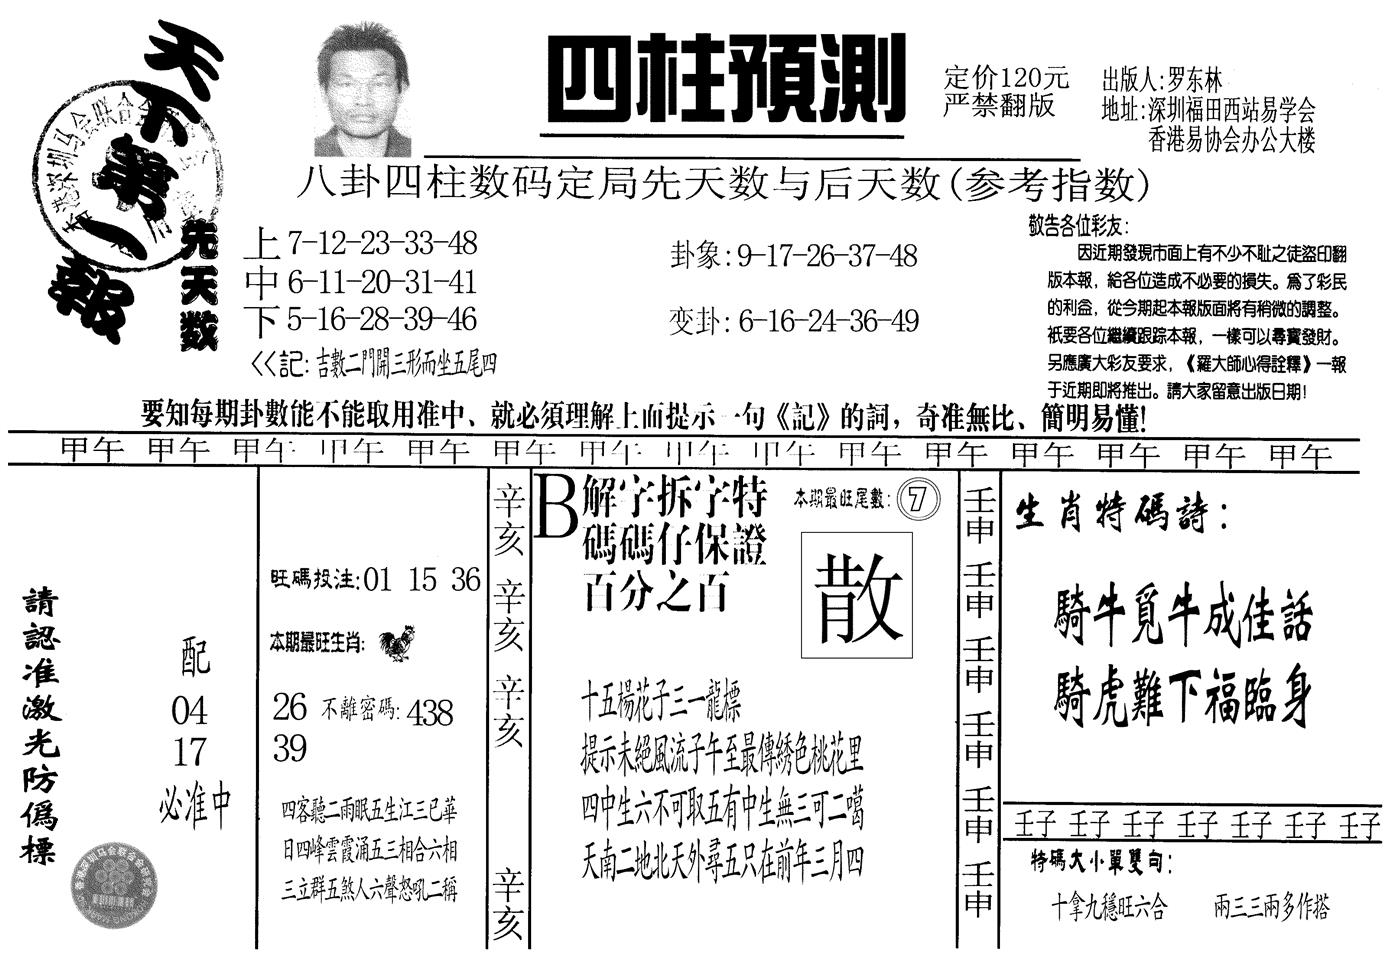 天下第一報
四柱預測
定价120元
严禁翻版
出版人:罗东林
地址:深圳福田西站易学会
香港易协会办公大楼
八卦四柱数码定局先天数与后天数(参考指数)
先天数
上 7-12-23-33-48
中 6-11-20-31-41
下 5-16-28-39-46
<<記: 吉數二門開三形而坐五尾四
卦象: 9-17-26-37-48
变卦: 6-16-24-36-49
敬告各位彩友:
因近期發現市面上有不少不耻之徒盜印翻
版本報，給各位造成不必要的損失。爲了彩民
的利益，從今期起本報版面將有稍微的調整。
衹要各位繼續跟踪本報，一樣可以尋寶發財。
另應廣大彩友要求，《羅大師心得詮釋》一報
于近期即將推出。請大家留意出版日期!
要知每期卦數能不能取用准中、就必須理解上面提示一句《記》的詞，奇准無比、簡明易懂!
甲午 甲午 甲午 甲午 甲午 甲午 甲午 甲午 甲午 甲午 甲午 甲午 甲午 甲午 甲午
請認准激光防僞標
配
04
17
必准中
旺碼投注:01 15 36
本期最旺生肖:
26 不離密碼: 438
39
四客聽二雨眠五生江三已華
日四峰雲霞涌五三相合六相
三立群五煞人六聲怒吼二稱
辛亥 辛亥 辛亥 辛亥
B
解字拆字特
碼碼仔保證
百分之百
本期最旺尾數: 7
散
十五楊花子三一龍標
提示未絕風流子午至最傳綉色桃花里
四中生六不可取五有中生無三可二噶
天南二地北天外尋五只在前年三月四
壬申 壬申 壬申 壬申 壬申 壬申
生肖特碼詩:
騎牛覓牛成佳話
騎虎難下福臨身
壬子 壬子 壬子 壬子 壬子 壬子 壬子
特碼大小單雙句:
十拿九穩旺六合 兩三三兩多作搭